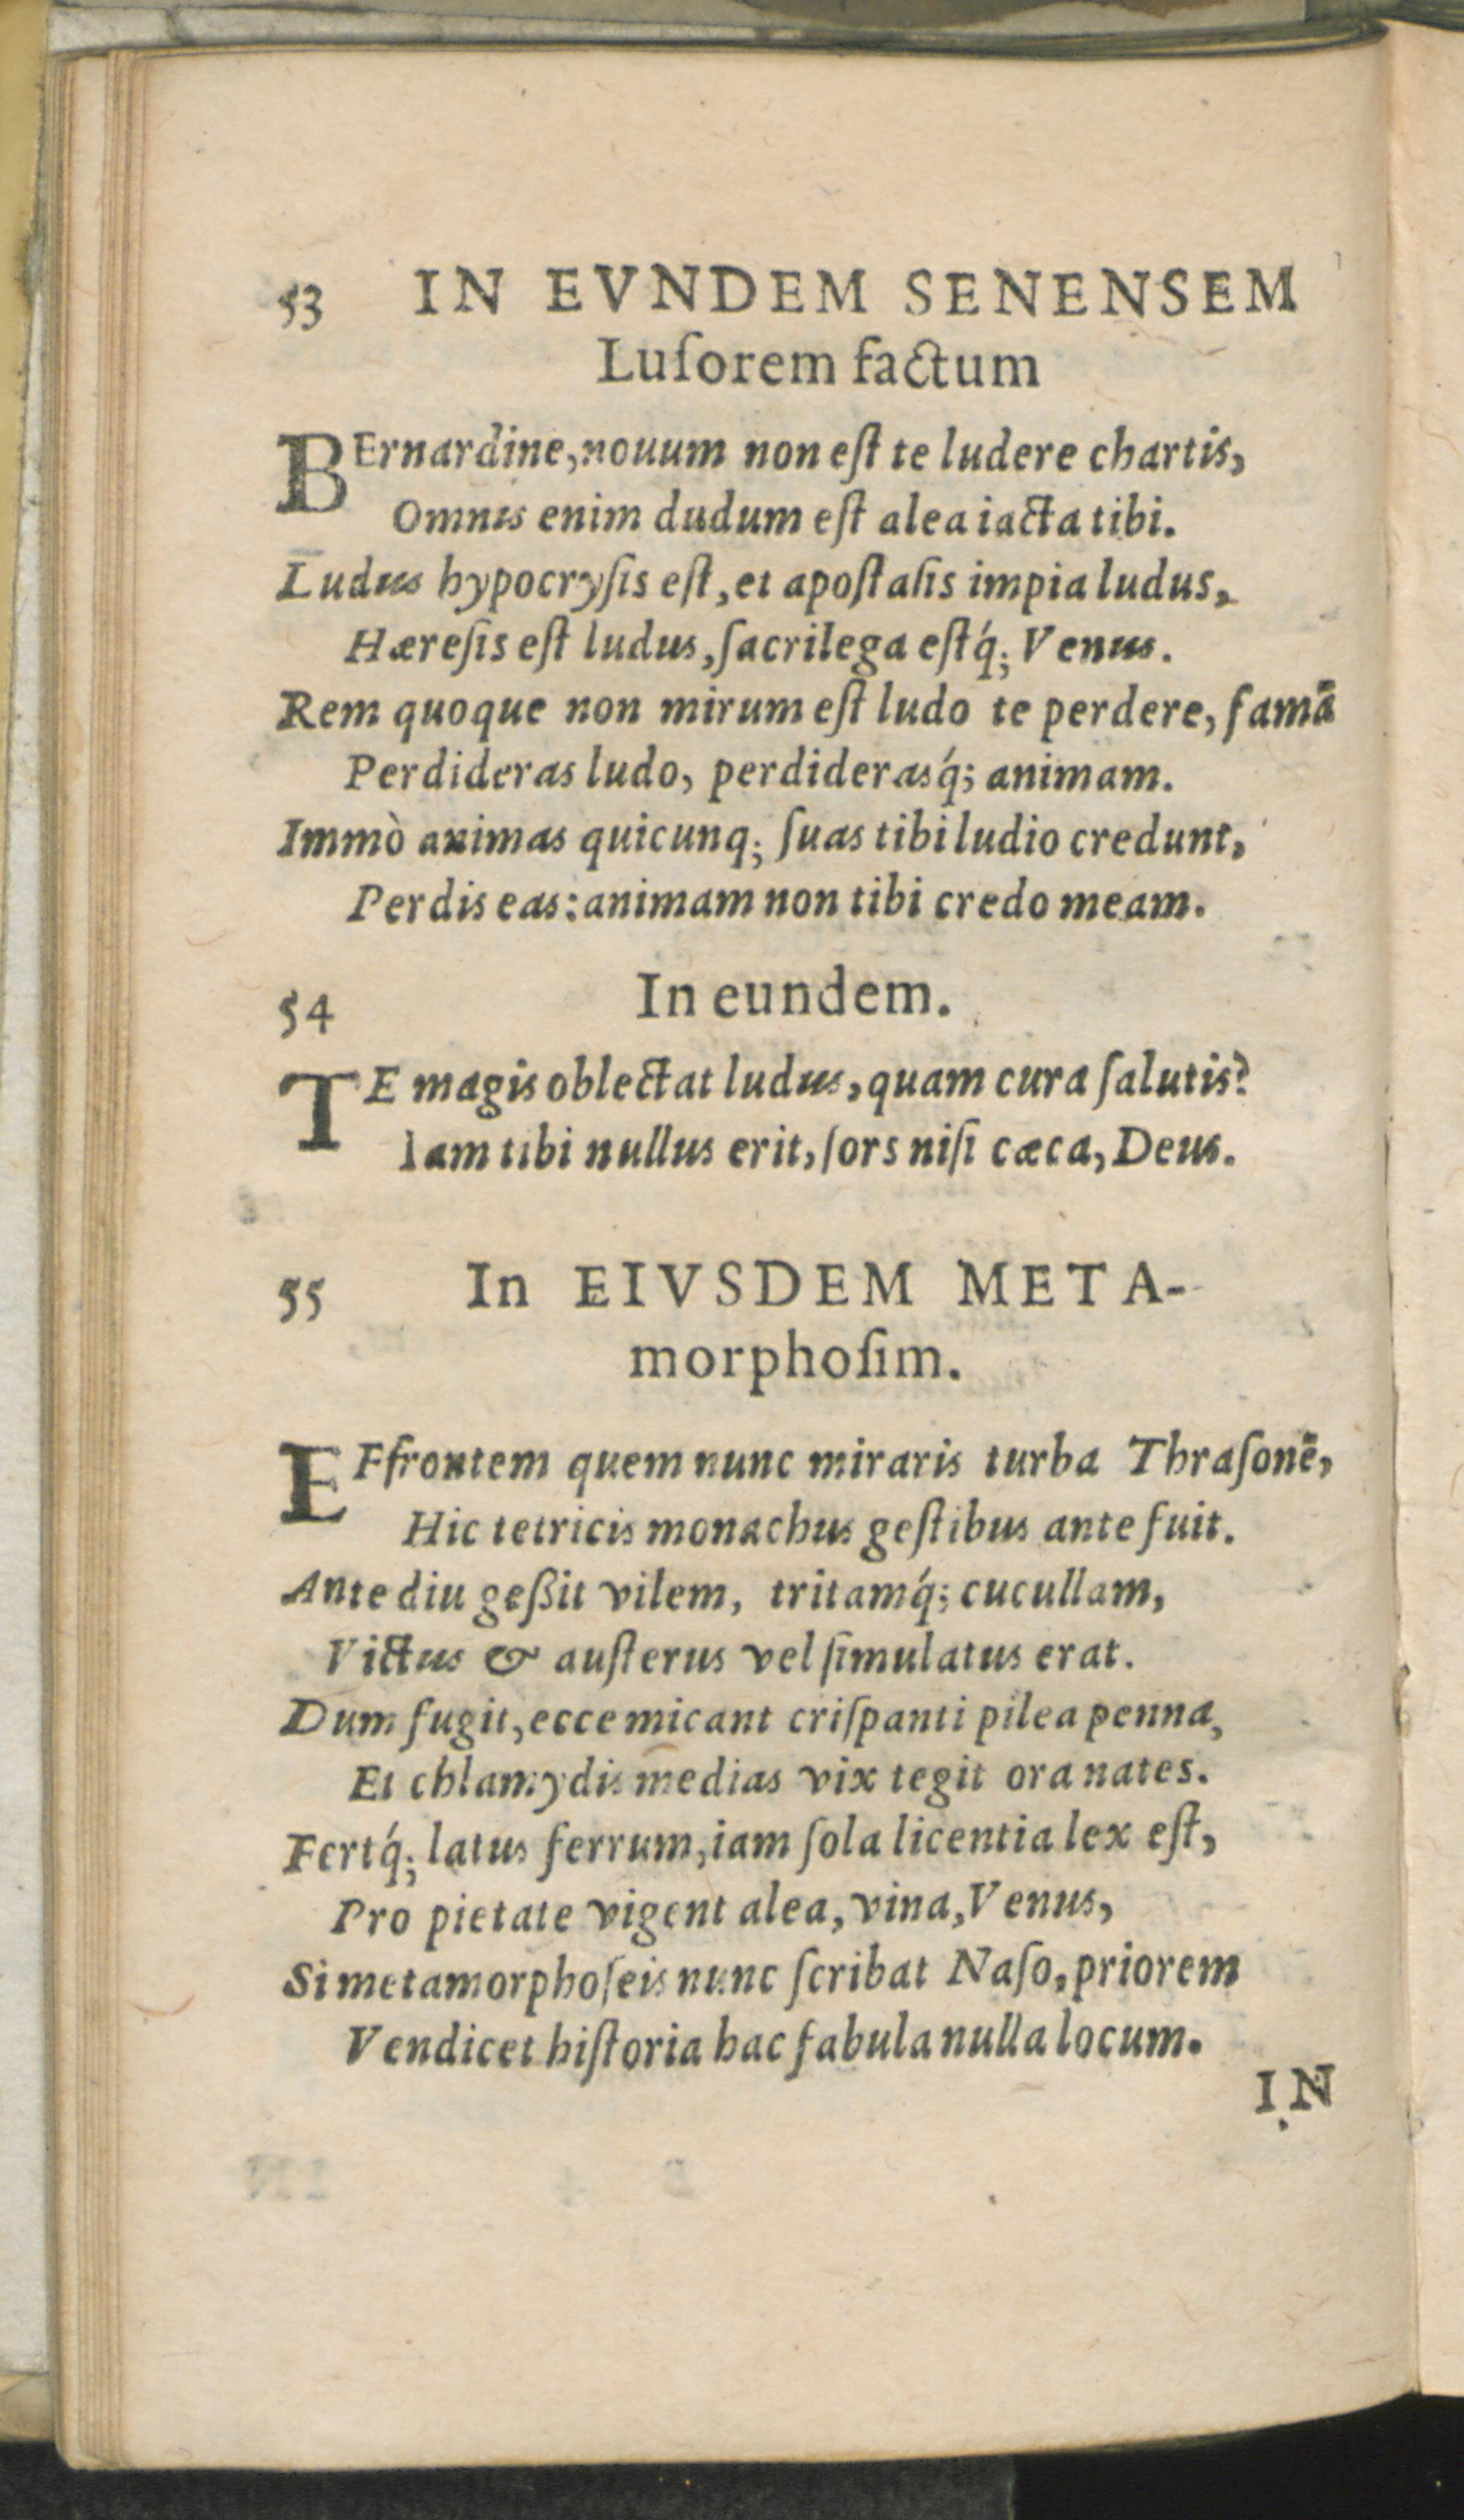 53 IN EVNDEM SENENSEM
Luſorem factum
BErnardine, nouum non eſt te ludere chartis,
Omnis enim dudum eſt alea iacta tibi.
Ludus hypocryſis eſt, et apoſtaſis impia ludus,
Hæreſis eſt ludus, ſacrilega eſtq́; Venus.
Rem quoque non mirum eſt ludo te perdere, famā
Perdideras ludo, perdiderasq́; animam.
Immò animas quicunq; ſuas tibi ludio credunt,
Perdis eas: animam non tibi credo meam.
54 In eundem.
TE magis oblectat ludus, quam cura ſalutis?
Iam tibi nullus erit, ſors niſi cæca, Deus.
55 In EIVSDEM META-
morphoſim.
EFfrontem quem nunc miraris turba Thraſonē,
Hic tetricis monachus geſtibus ante fuit.
Ante diu geßit vilem, tritamq́; cucullam,
Victus & auſterus vel ſimulatus erat.
Dum fugit, ecce micant criſpanti pilea penna,
Et chlamydis medias vix tegit ora nates.
Fertq́; latus ferrum, iam ſola licentia lex eſt,
Pro pietate vigent alea, vina, Venus,
Si metamorphoſeis nunc ſcribat Naſo, priorem
Vendicet hiſtoria hac fabula nulla locum.
IN